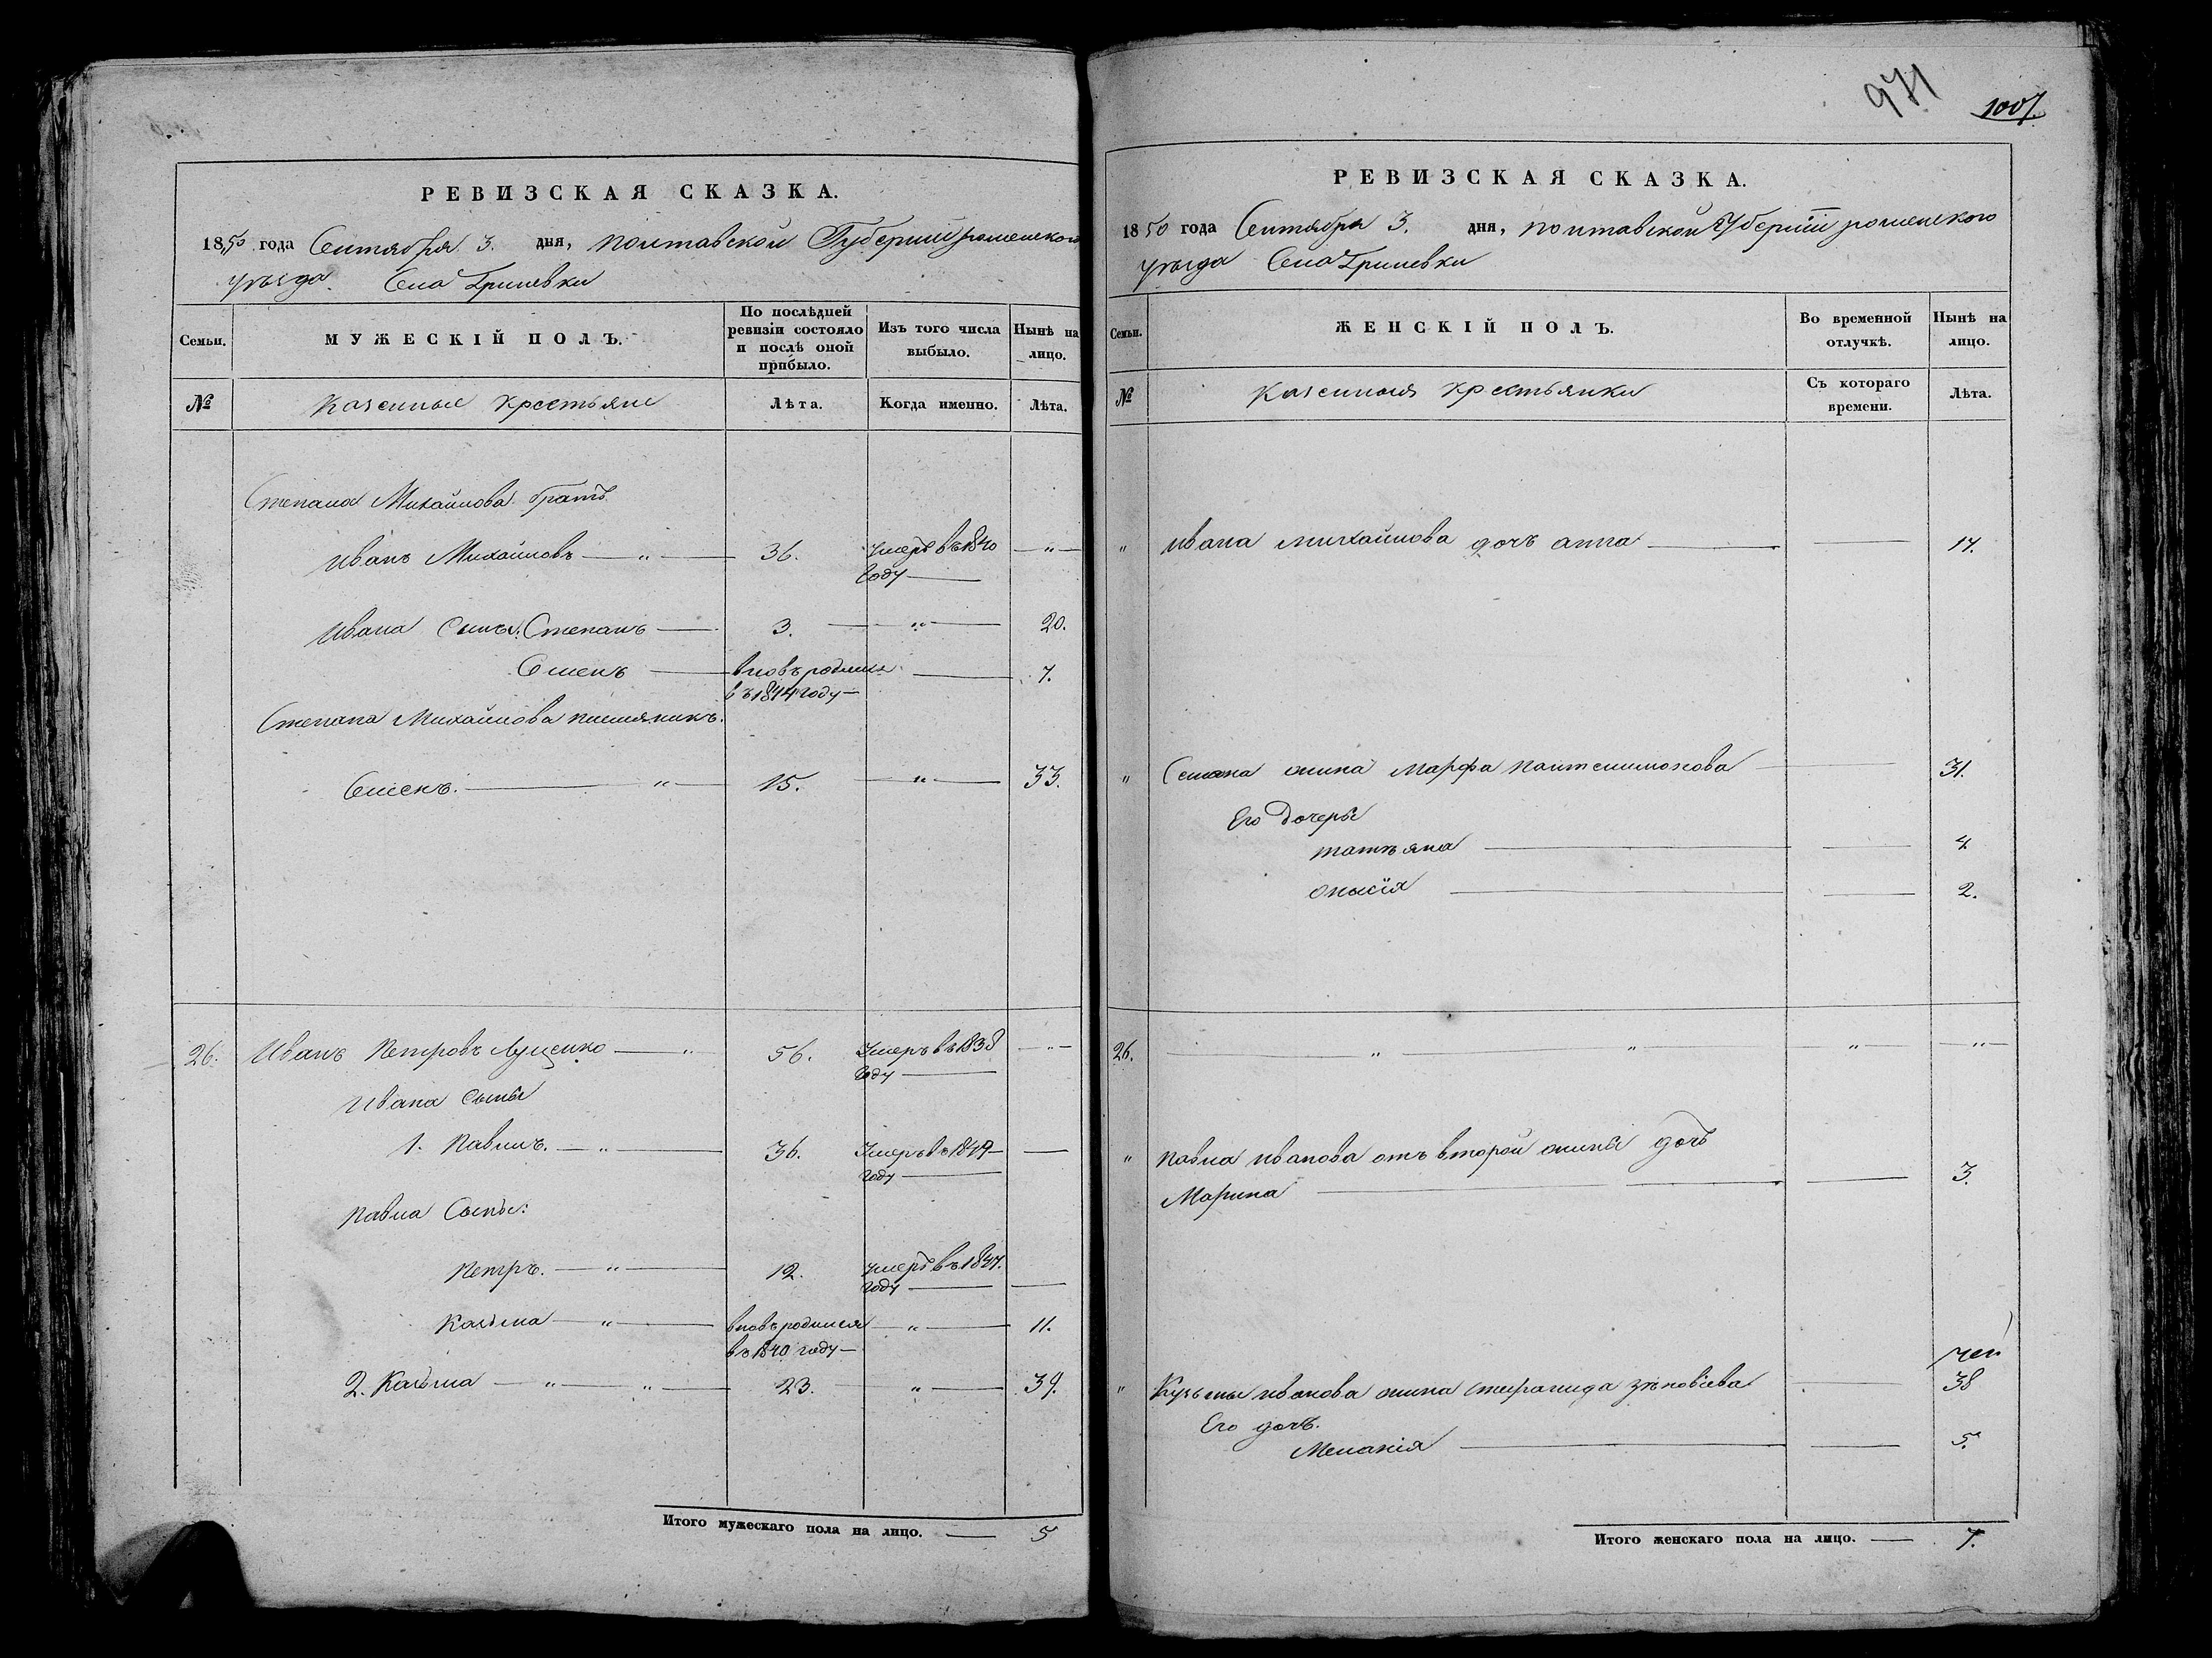 РЕВИЗСКАЯ СКАЗКА.
1850 года Сентября 3. дня, полтавской Губернии роменского
уѣзда. Села Гриневки
Семьи.
МУЖЕСКІЙ ПОЛЪ.
По послѣдней ревизіи состояло и послѣ оной прибыло.
Изъ того числа выбыло.
Нынѣ на лицо.
№
Казенные крестьяне
Лѣта.
Когда именно.
Лѣта.
Степана Михайлова братъ
Иванъ Михайловъ — " — 36. Умеръ въ 1840 году — — " —
Ивана сынъ: Степанъ — 3. — " — 20.
Семенъ — вновь родился въ 1844 году — — 7.
Степана Михайлова племянникъ.
Семенъ. — " — 15. — " — 33.
26. Иванъ Петровъ Луценко — " 56. Умеръ въ 1838 году — — " —
Ивана сыны
1. Павелъ. — " — 36. Умеръ въ 1849 году — —
Павла Сыны:
Петръ. — " — 12. Умеръ въ 1847. году — —
Козьма — " — вновь родился въ 1840 году — — " — 11.
2. Козьма — " — " — 23. — " — 39.
Итого мужескаго пола на лицо. — 5
971
1007.
РЕВИЗСКАЯ СКАЗКА.
1850 года Сентября 3. дня, полтавской Губерніи роменского
уѣзда Села Гриневки
Семьи.
ЖЕНСКІЙ ПОЛЪ.
Во временной отлучкѣ.
Нынѣ на лицо.
№
Казенныя крестьянки
Съ котораго времени.
Лѣта.
" Ивана михайлова дочь анна — — 14.
" Семена жина Марфа пантелимонова — 31.
Его дочери
татьяна — — 4
— — 2.
26. — " — " — — " — — " —
" Павла иванова отъ второй жины дочь
Марина — — — 3.
38
" Кузьмы иванова жина зѣновіева — 
Его дочь.
Меланія — — 5.
Итого женскаго пола на лицо. — 7.